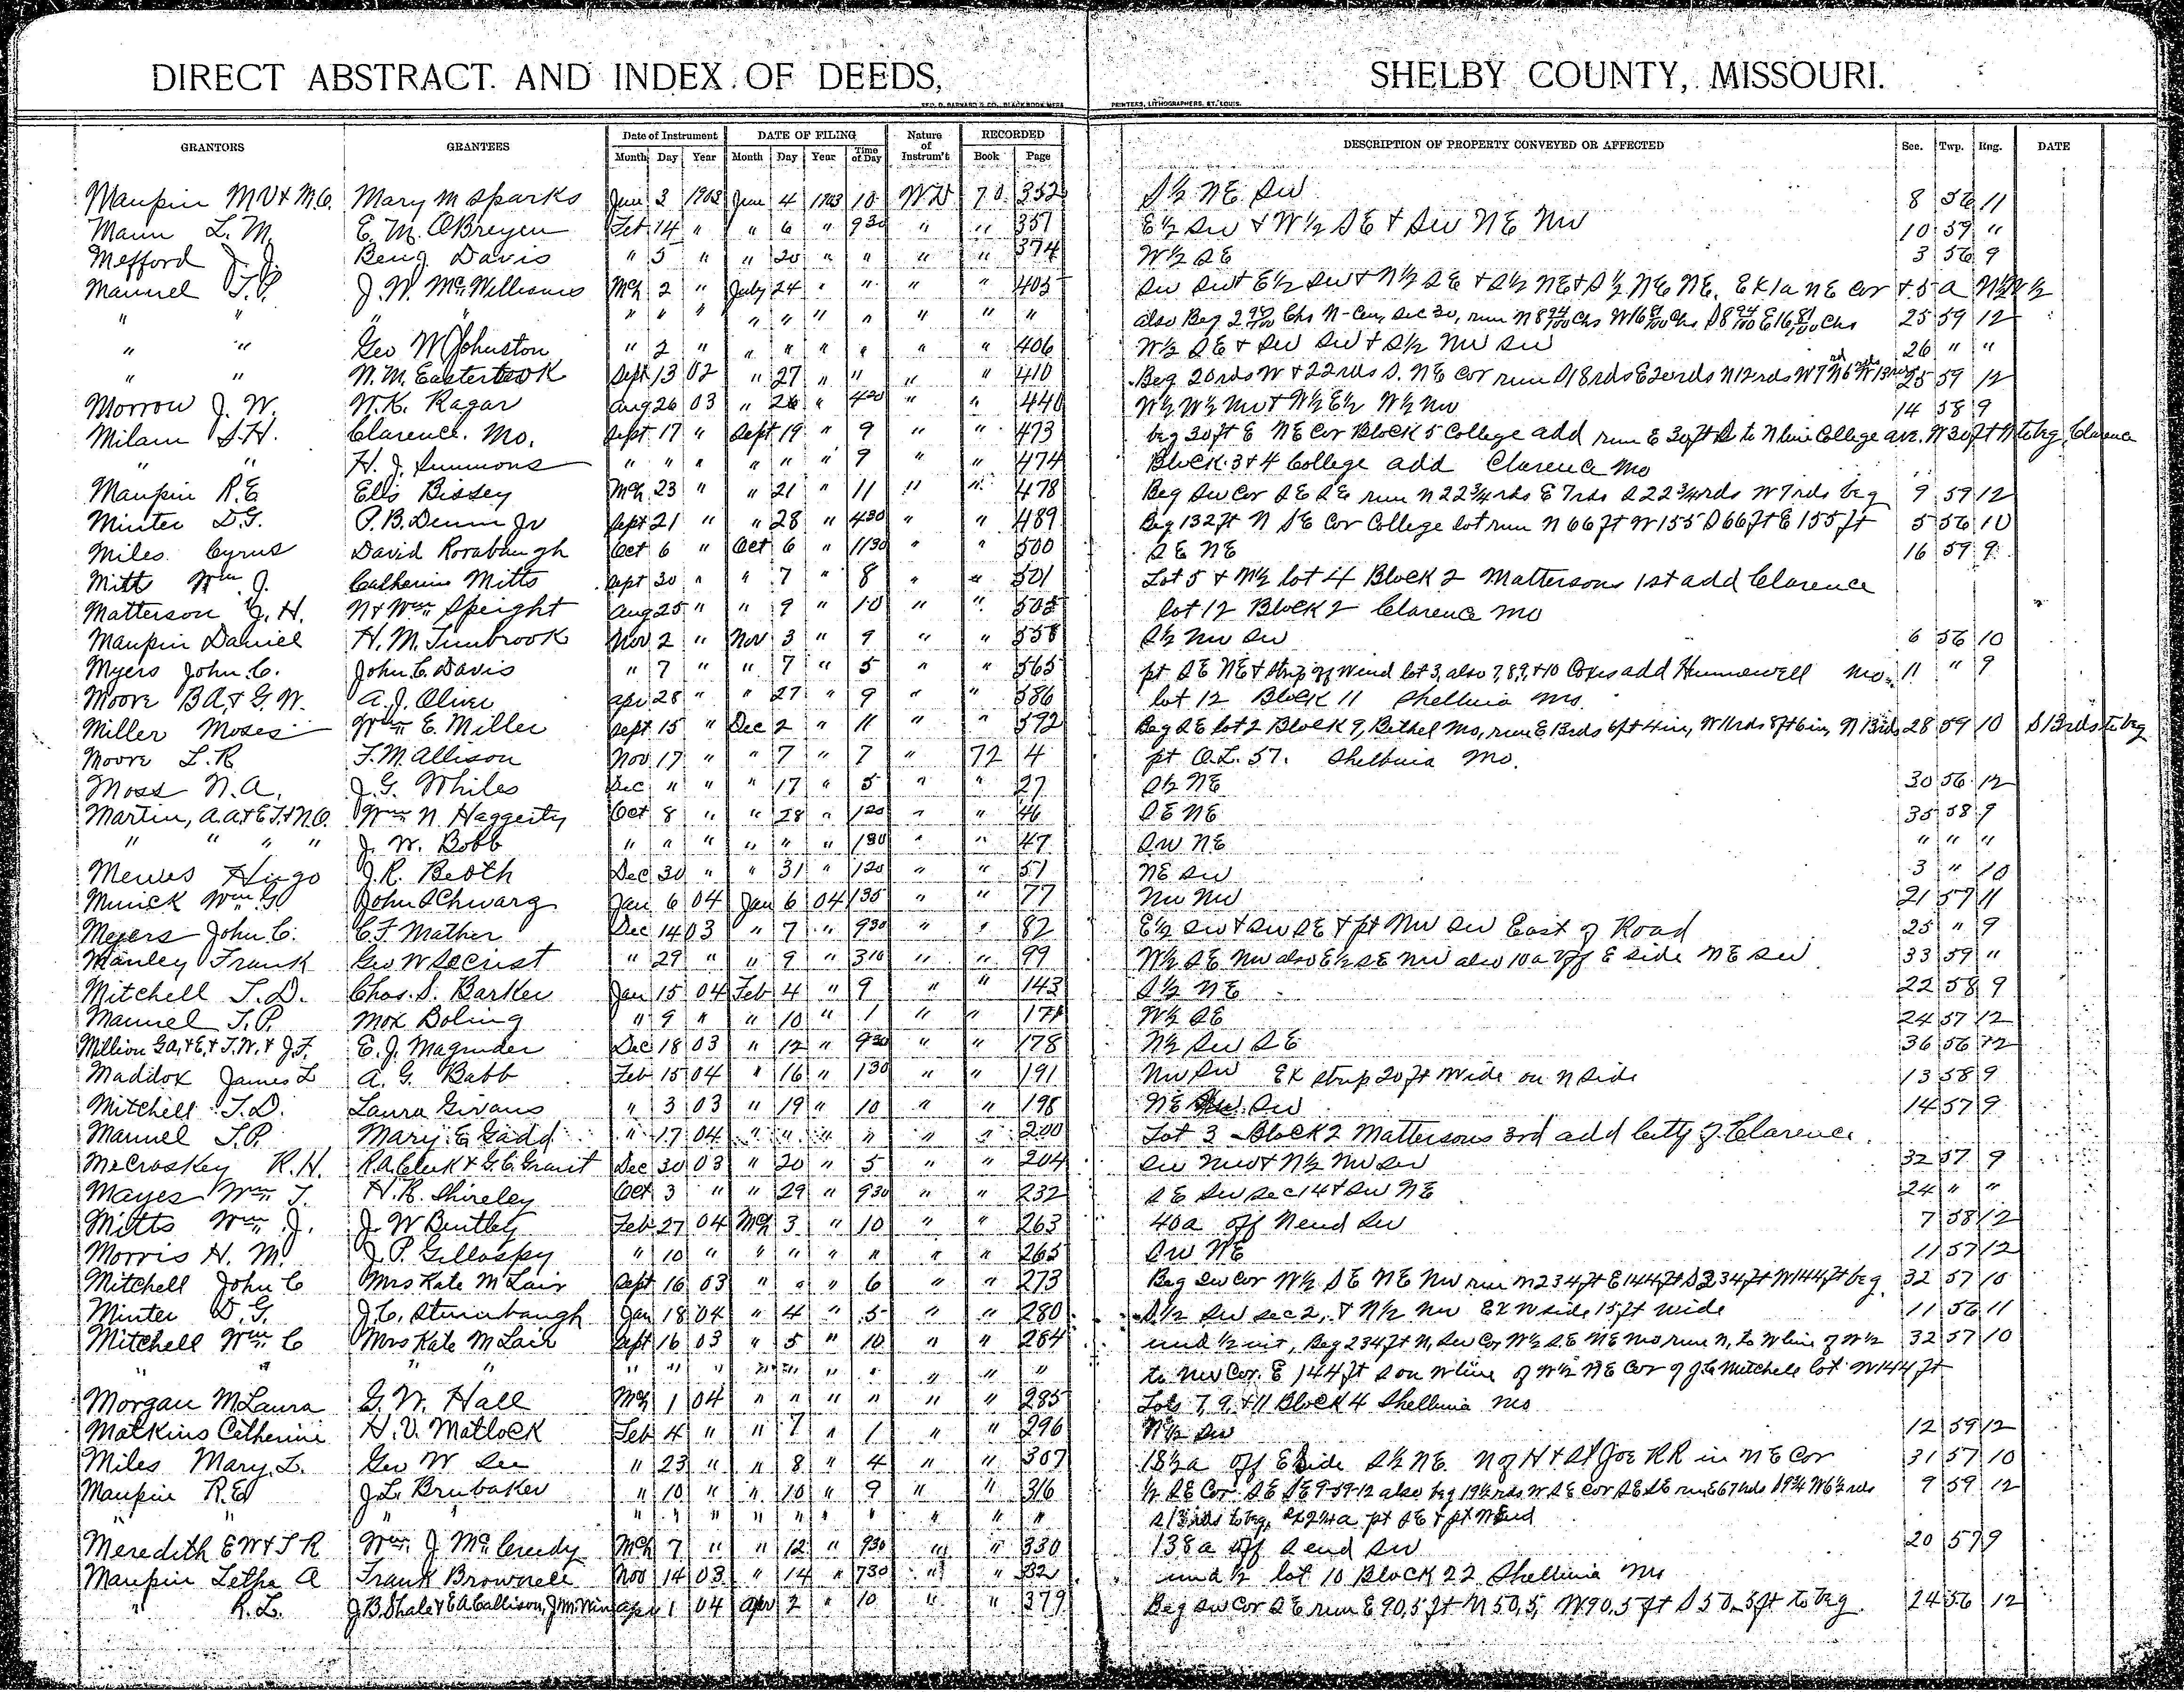 DIRECT ABSTRACT. AND INDEX OF DEEDS, SHELBY COUNTY, MISSOURI.
GEO. D. BARNARD & CO., BLANK BOOK MFRS PRINTERS, LITHOGRAPHERS, ST. LOUIS.
GRANTORS GRANTEES Date of Instrument DATE OF FILING Nature of Instrum't RECORDED DESCRIPTION OF PROPERTY CONVEYED OR AFFECTED Sec. Twp. Rng. DATE
Month Day Year Month Day Year Time of Day Book Page
Maupin M.V & M.C. Mary M Sparks Jun 3 1903 Jun 4 1903 10 WD 70 352 S½ NE SW 8 56 11
Mann L. M. E. M. OBreyen Feb 14 " " 6 " 930 " " 357 E½ SW & W½ SE & SW NE NW 10 59 "
Mefford J. J. Benj Davis " 5 " " 20 " " " " 374 W½ SE 3 56 9
Manuel T. P. J. W. McWilliams Mch 2 " July 24 " " " " 405 SW SW & E½ SW & N½ SE & S½ NE & S½ NE NE. EX 1a NE Cor & 5 a N½
" " " " " " " " " " " " " " also Beg 2 Chs N-Cen, Sec 30, run N 8 94/100 Chs W 16 81/100 Chs S 8 94/100 E 16 81/100 Chs 25 59 12
" " Geo W Johnston " 2 " " " " " " " 406 W½ SE & SW SW & S½ NW SW 26 " "
" " W. M. Easterbrook Sept 13 02 " 27 " " " " 410 Beg 20rds W & 22rds S. NE Cor run S18rds E20rds N12rds W7 N6 W13 25 59 12
Morrow J. W. W. K. Ragar Aug 26 03 " 26 " 420 " " 440 W½ W½ NW & W½ E½ W½ NW 14 58 9
Milam S. H. Clarence. Mo. Sept 17 " Sept 19 " 9 " " 473 beg 30ft E NE Cor Block 5 College add run E 30ft S to N line College ave. W 30ft N to beg, Clarence
" " H. J. Simmons " " " " " " 9 " " 474 Block 3 & 4 College add Clarence Mo
Maupin R. E Elis Bissey Mch 23 " " 21 " 11 " " 478 Beg SW Cor SE SE run N 22¾ rds E 7rds S 22¾ rds W 7rds beg 9 59 12
Minter D. G. P. B. Dunn Jr Sept 21 " " 28 " 430 " " 489 Beg 132 ft N SE Cor College lot run N 66 ft W 155 S 66 ft E 155 ft 5 56 10
Miles Cyrus David Rorabaugh Oct 6 " Oct 6 " 1130 " " 500 SE NE 16 59 9
Mitt Wm. J. Catherine Mitts Sept 30 " " 7 " 8 " " 501 Lot 5 & N½ lot 4 Block 2 Mattersons 1st add Clarence
Matterson J. H. N & Wm Speight Aug 25 " " 9 " 10 " " 505 lot 12 Block 2 Clarence Mo
Maupin Daniel H. M. Timbrook Nov 2 " Nov 3 " 9 " " 558 S½ NW SW 6 56 10
Myers John. C. John C. Davis " 7 " " 7 " 5 " " 565 pt SE NE & strip off W end lot 3, also 7, 8, 9, & 10 Coxes add Hunnewell Mo. 11 " 9
Moore B A, & G. W. A. J. Oliver Apr 28 " " 27 " 9 " " 586 lot 12 Block 11 Shelbina Mo.
Miller Moses Wm E. Miller Sept 15 " Dec 2 " 11 " " 592 Beg SE lot 2 Block 9, Bethel Mo, run E 13rds 6ft 4in, W 11rds 8ft 6in, N 13rds 28 59 10 S 13rds to beg
Moore L. R F. M. Allison Nov 17 " " 7 " 7 " 72 4 pt O. L. 57. Shelbina Mo.
Moss N. A. J. G. Whiles Dec " " " 17 " 5 " " 27 S½ NE 30 56 12
Martin, A. A & E T & N. O. Wm N. Haggerty Oct 8 " " 28 " 120 " " 46 SE NE 35 58 9
" " " " J. W. Bobb " " " " " " 130 " " 47 SW NE " " "
Mewes Hugo J. R. Beoth Dec 30 " " 31 " 120 " " 51 NE SW 3 " 10
Minick Wm G John Schwarg Jan 6 04 Jan 6 04 135 " " 77 NW NW 21 57 11
Meyers John C. C. F. Mather Dec 14 03 " 7 " 930 " " 82 E½ SW & SW SE & pt NW SW East of Road 25 " 9
Manley Frank Geo W Secrist " 29 " " 9 " 310 " " 99 W½ SE NW also E½ SE NW also 10a off E side NE SW 33 59 "
Mitchell T. D. Chas. S. Barker Jan 15 04 Feb 4 " 9 " " 143 S½ NE 22 58 9
Manuel T. P. Mox Boling " 9 " " 10 " 1 " " 171 W½ SE 24 57 12
Million G A, & E, & T. W, & J. F. E. J. Magruder Dec 18 03 " 12 " 930 " " 178 N½ SW SE 36 56 12
Maddox James L A. G. Babb Feb 15 04 " 16 " 130 " " 191 NW SW EX strip 20 ft wide on N side 13 58 9
Mitchell T. D. Laura Givans " 3 03 " 19 " 10 " " 198 NE SW 14 57 9
Manuel T. P. Mary E Gadd " 17 04 " " " " " " 200 Lot 3 Block 2 Mattersons 3rd add City of Clarence.
McCroskey R. H. R. A. Clerk & G. C. Grant Dec 30 03 " 20 " 5 " " 204 SW NW & N½ NW SW 32 57 9
Mayes Wm. T. H. R. Shireley Oct 3 " " 29 " 930 " " 232 SE SW Sec 14 & SW NE 24 " "
Mitts Wm. J. J. W Bentley Feb 27 04 Mch 3 " 10 " " 263 40a off N end SW 7 58 12
Morris H. M. J. P. Gillaspy " 10 " " " " " " " 265 SW NE 11 57 12
Mitchell John C Mrs Kate M Lair Sept 16 03 " " " 6 " " 273 Beg SW Cor W½ SE NE NW run N 234 ft E 144 ft S 234 ft W 144 ft beg. 32 57 10
Minter D. G. J. C. Stumbaugh Jan 18 04 " 4 " 5 " " 280 S½ SW Sec 2, & N½ NW EX W side 15 ft wide 11 56 11
Mitchell Wm C Mrs Kate M Lair Sept 16 03 " 5 " 10 " " 284 und ½ int, Beg 234 ft N, SW Cor W½ SE NE NW run N, to N line of W½ 32 57 10
" " " " " " " " " " " " " to NW Cor. E 144 ft S on W line of W½ NE Cor of J. C. Mitchell lot W 144 ft
Morgan M Laura G. W. Hall Mch 1 04 " " " " " " 285 Lots 7, 9, & 11 Block 4 Shelbina Mo
Matkins Catherine H. V. Matlock Feb 4 " " 7 " 1 " " 296 N½ SW 12 59 12
Miles Mary. L. Geo W See " 23 " " 8 " 4 " " 307 18½a off E Side S½ NE. N of H & St Joe RR in NE Cor 31 57 10
Maupin R. E J. L. Brubaker " 10 " " 10 " 9 " " 316 ½ SE Cor SE SE 9-59-12 also beg 19½ rds W SE Cor SE SE run 9 59 12
" " " " " " " " " " " " " S 13 rds to beg, pt SE & pt W end
Meredith E W & T R Wm. J McCreedy Mch 7 " " 12 " 930 " " 330 138a off S end SW 20 57 9
Maupin Letha A Frank Brownell Nov 14 03 " 14 " 730 " " 332 und ½ lot 10 Block 22 Shelbina Mo
" R. L. J. B. Shale & E A Callison, J. M. Apr 1 04 Apr 2 " 10 " " 379 Beg SW Cor SE run E 90,5 ft N 50,5, W 90,5 ft S 50,5 ft to beg. 24 56 12